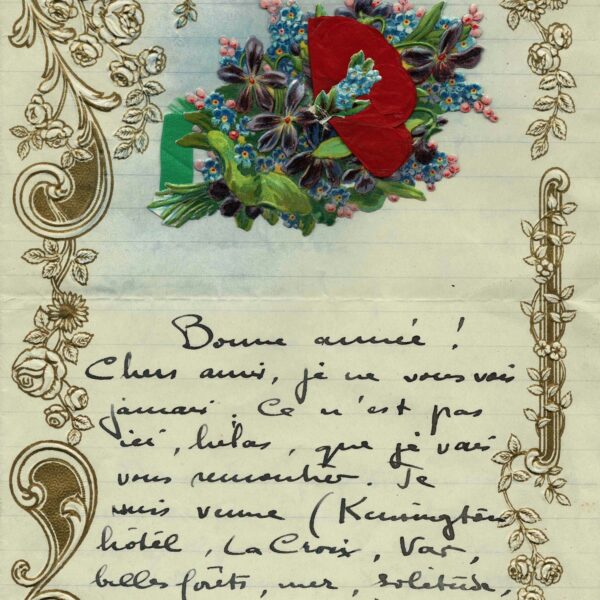 Bonne année !
Chers amis, je ne vous vois
jamais. Ce n'est pas
ici, hélas, que je vais
vous rencontrer. Je
suis venue (Kensington
hôtel, La Croix, Var,
belles forêts, mer, solitude,